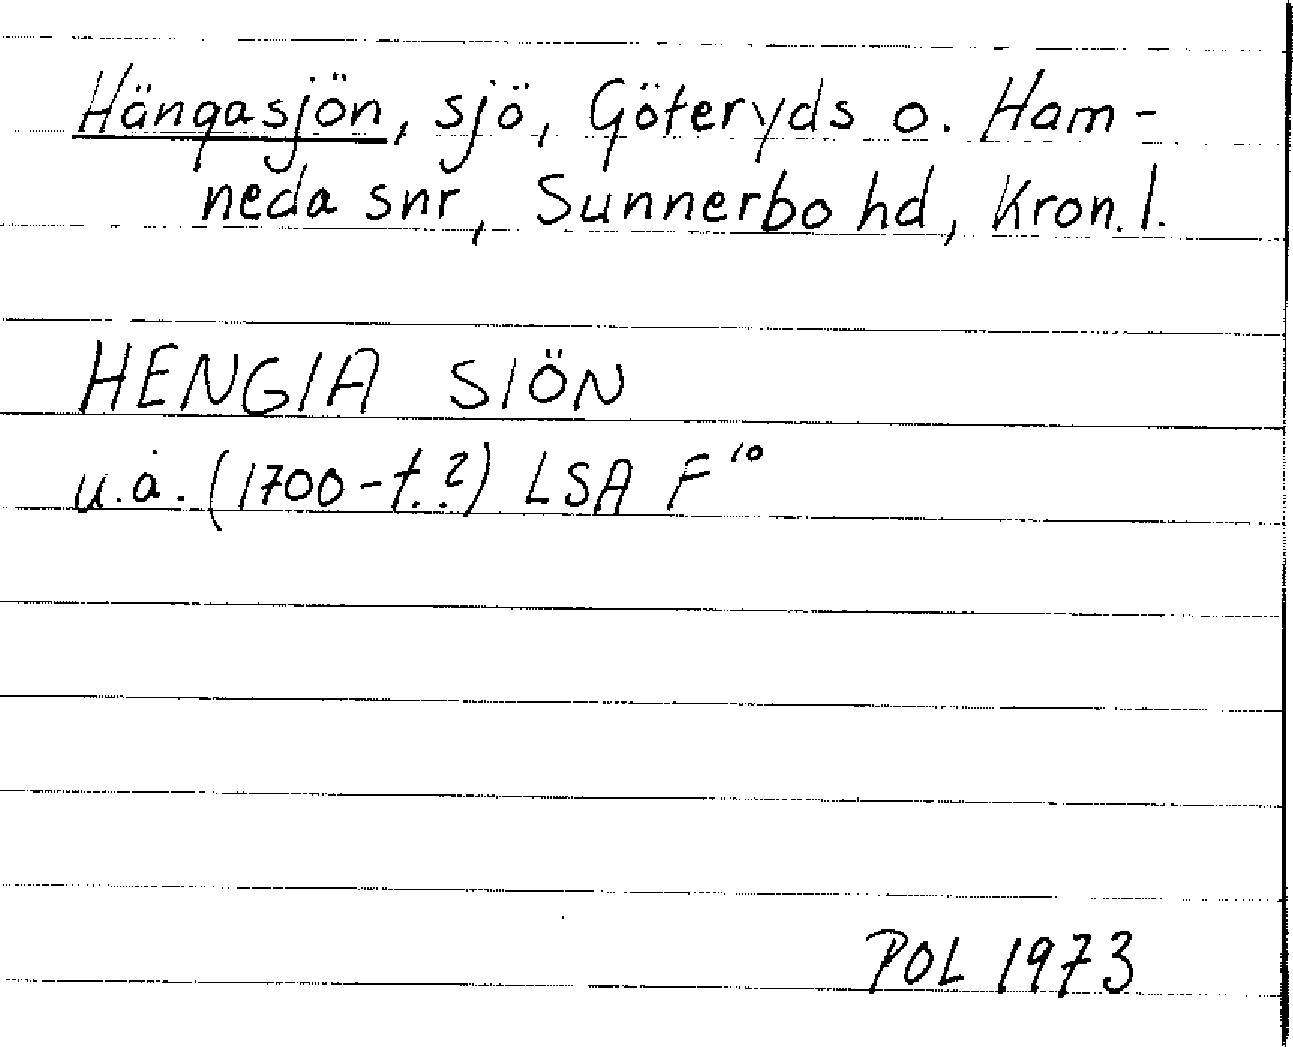 Hängasjön, sjö, Göteryds o. Ham-
neda snr, Sunnerbo hd, Kron. l.
HENGIA SIÖN
u.å. (1700-t.?) LSA F¹⁰
POL 1973